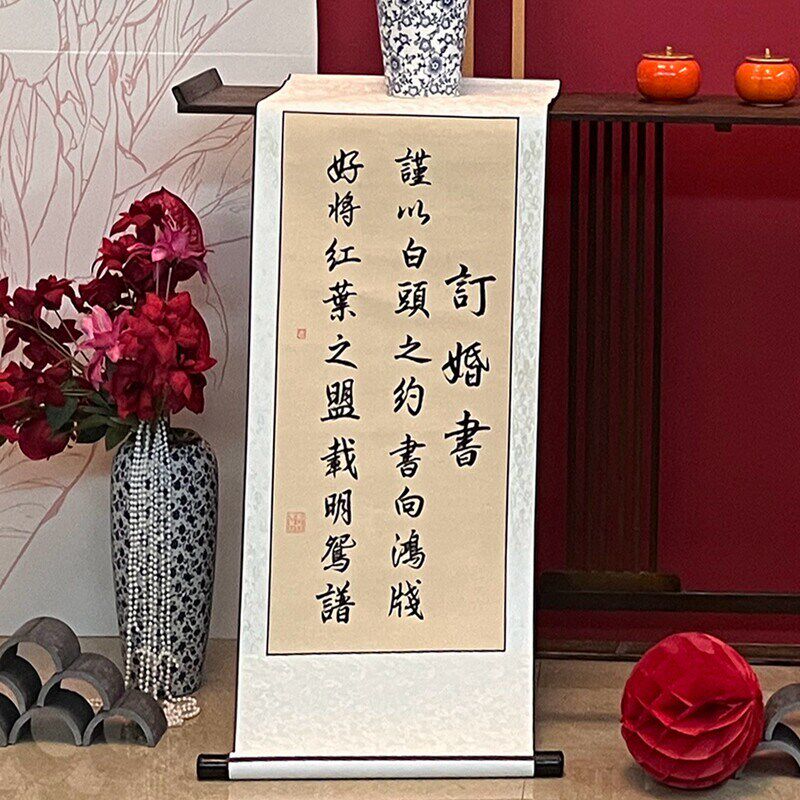 訂婚書
謹以白頭之約書向鴻牋
好將紅葉之盟載明鴛譜